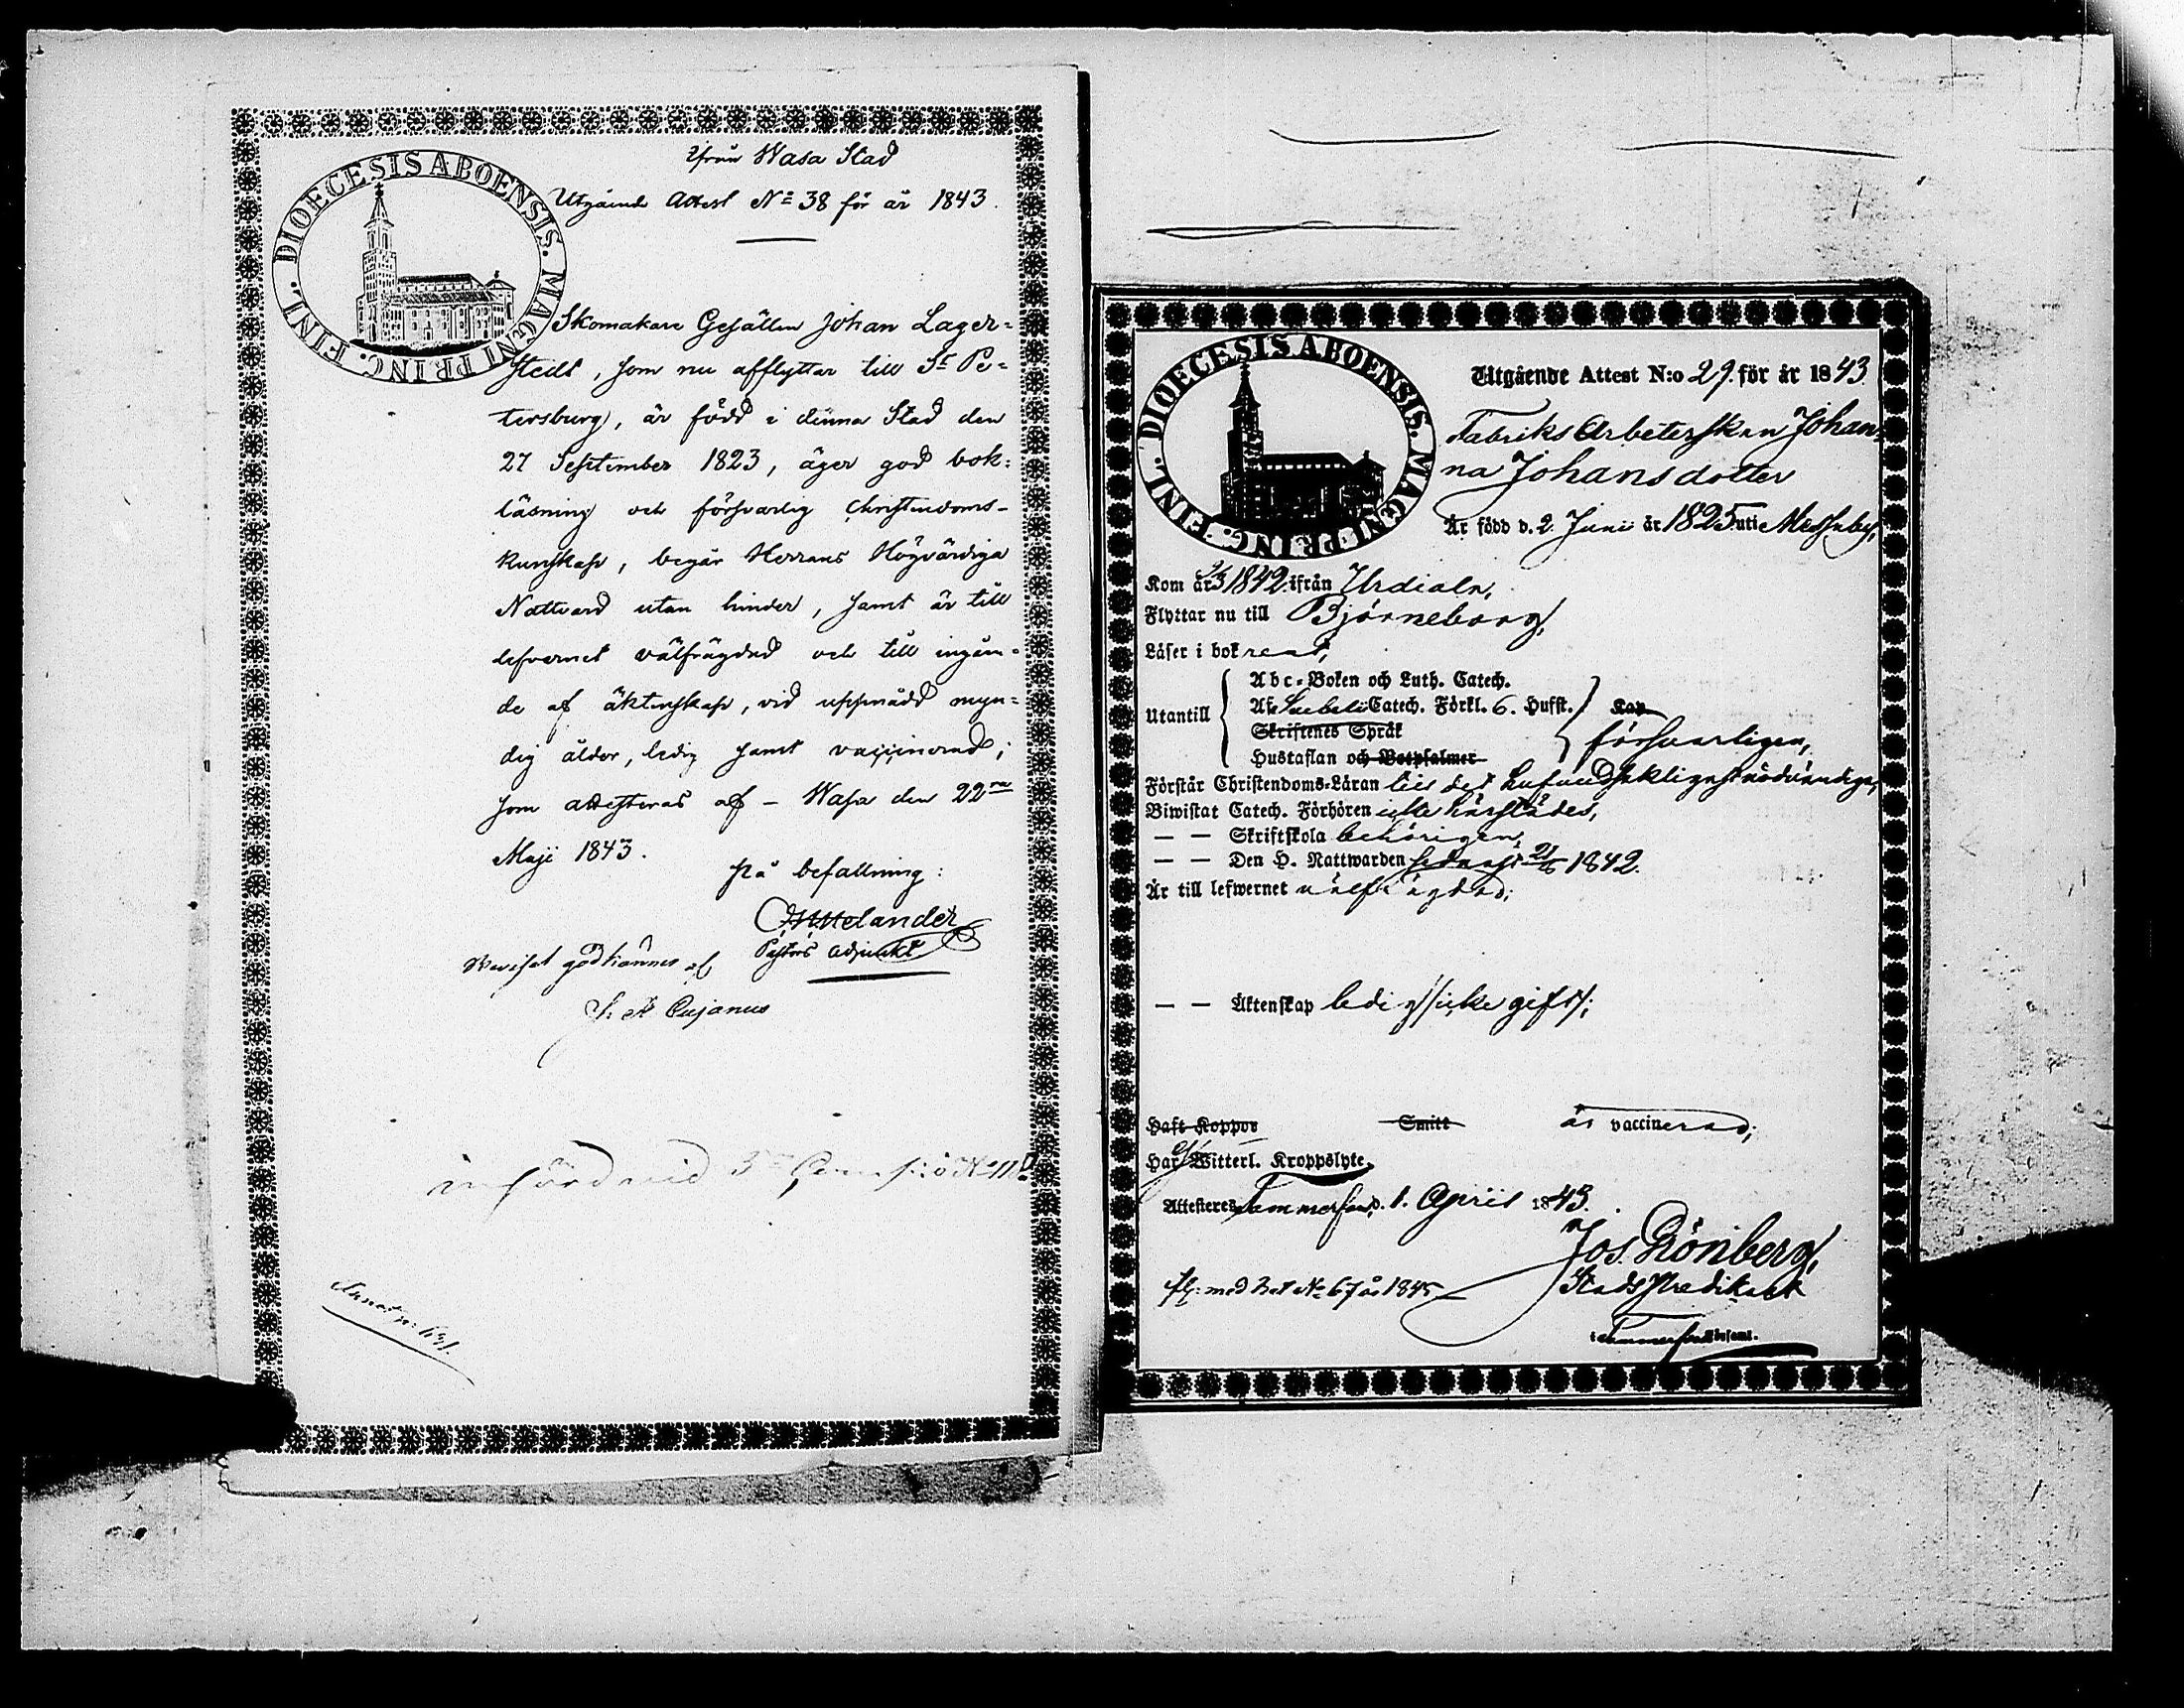 DIOECESIS ABOENSIS. MAGNI PRINC. FINL.
ifrån Wasa Stad
Utgående Attest No 38 för år 1843.
Skomakare Gesällen Johan Lager=
stedt, som nu afflyttar till St Pe=
tersburg, är född i denna Stad den
27 September 1823, äger god bok=
läsning och försvarlig Christendoms-
kunskap, begår Herrans Högvärdiga
Nattvard utan hinder, samt är till
lefvernet välfrägdad och till ingån=
de af äktenskap, vid uppnådd myn=
dig ålder, ledig samt vaccinerad;
som attesteras af - Wasa den 22
Maji 1843.
på befallning:
Pastors Adjunkt.
godkännes af
införd vid
DIOECESIS ABOENSIS. MAGNI PRINC. FINL.
Utgående Attest N:o 29. för år 1843.
Fabriks Arbeterskan Johan=
na Johansdotter
Är född d. 2. Junii år 1825 uti Messuby,
Kom år 1842. ifrån Urdiala,
Flyttar nu till Björneborg,
Läser i bok rent,
Utantill
Abc-Boken och Luth. Catech.
Af Svebelii Catech. Förkl. 6. Hufst.
Skriftenes Språk
Hustaflan och Botpsalmer
Kap
försvarligen,
Förstår Christendoms-Läran till det hufvudsakligast nödvändiga,
Biwistat Catech. Förhören icke härstädes,
— — Skriftskola behörigen,
— — Den H. Nattwarden sednast 1842.
Är till lefwernet välfrägdad;
— — Äktenskap ledig /: icke gift :/;
Haft Koppor Smitt är vaccinerad;
Har Witterl. Kroppslyte,
Attesteres Tammerfors d. 1. April 1843.
Jos. Rönberg,
Stads Predikant
med bet No 67 år 1845
i Tammerfors